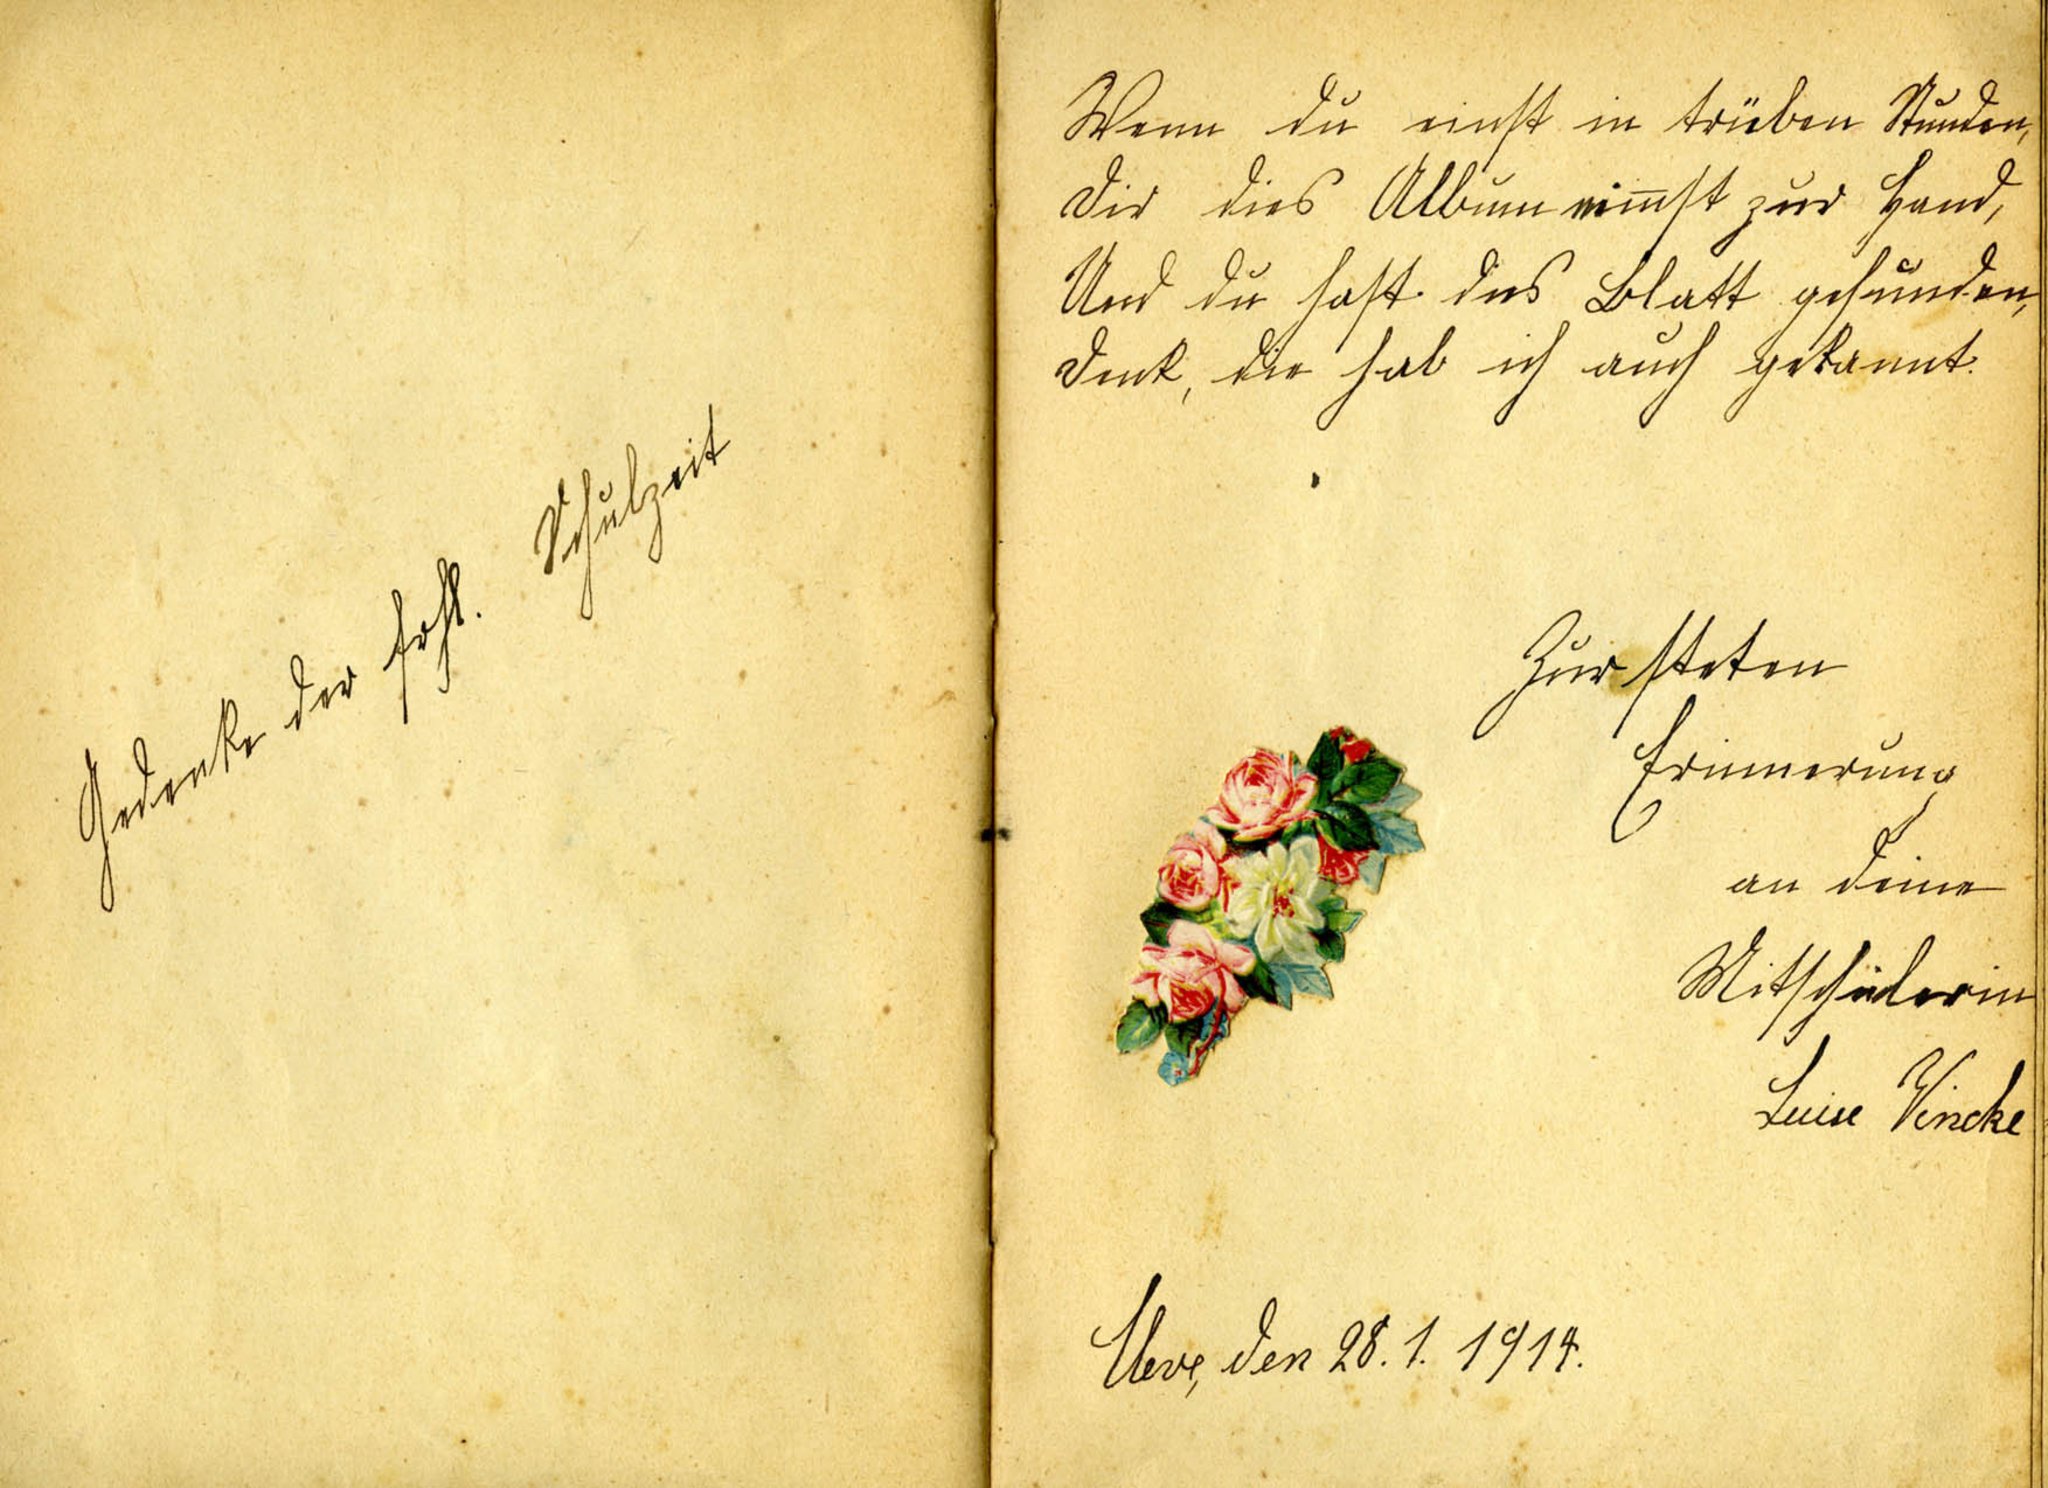 Gedenke der fröhl. Schulzeit
Wenn du einst in trüben Stunden,
Dir dies Album nim̅st zur Hand,
Und du hast dies Blatt gefunden,
Denk, die hab ich auch gekannt.
Zur steten
Erinnerung
an deine
Mitschülerin
Luise Vincke
Cleve, den 28. 1. 1914.